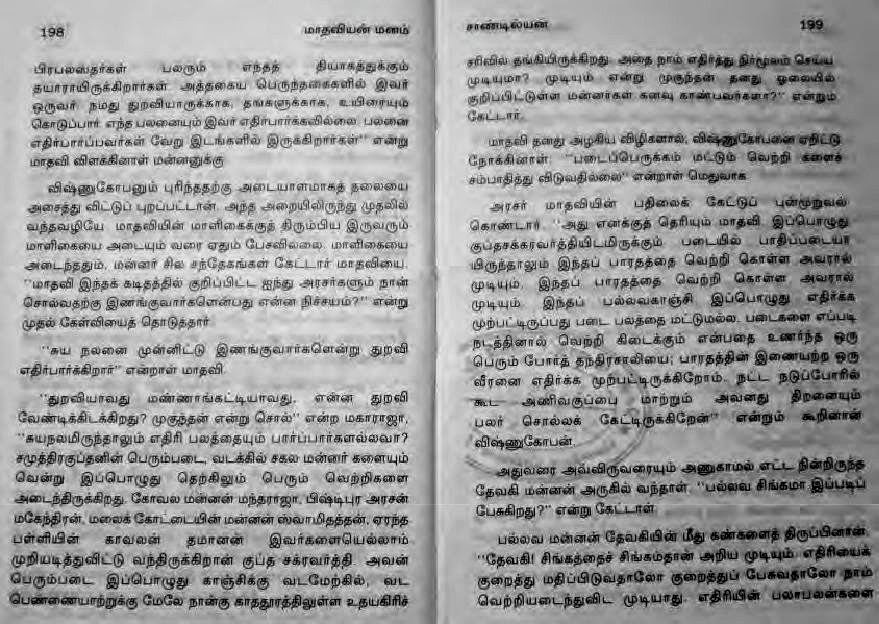 198 மாதவியன் மனம்
பிரபலஸதர்கள் பலரும் எந்தத் தியாகத்துக்கும்
தயாராயிருக்கிறார்கள். அத்தகைய பெருந்தகைகளில் இவர்
ஒருவர். நமது துறவியாருக்காக, தங்களுக்காக, உயிரையும்
கொடுப்பார். எந்த பலனையும் இவர் எதிர்பார்க்கவில்லை. பலனை
எதிர்பார்ப்பவர்கள் வேறு இடங்களில் இருக்கிறார்கள்'' என்று
மாதவி விளக்கினாள் மன்னனுக்கு
விஷ்ணுகோபனும் புரிந்ததற்கு அடையாளமாகத் தலையை
அசைத்து விட்டுப் புறப்பட்டான். அந்த அறையிலிருந்து முதலில்
வந்தவழியே மாதவியின் மாளிகைக்குத் திரும்பிய இருவரும்
மாளிகையை அடையும் வரை ஏதும் பேசவில்லை. மாளிகையை
அடைந்ததும், மன்னர் சில சந்தேகங்கள் கேட்டார் மாதவியை.
''மாதவி இந்தக் கடிதத்தில் குறிப்பிட்ட ஐந்து அரசர்களும் நான்
சொல்வதற்கு இணங்குவார்களென்பது என்ன நிச்சயம்?'' என்று
முதல் கேள்வியைத் தொடுத்தார்.
''சுய நலனை முன்னிட்டு இணங்குவார்களென்று துறவி
எதிர்பார்க்கிறார்'' என்றாள் மாதவி.
''துறவியாவது மண்ணாங்கட்டியாவது, என்ன துறவி
வேண்டிக்கிடக்கிறது? முகுந்தன் என்று சொல்'' என்ற மகாராஜா,
''சுயநலமிருந்தாலும் எதிரி பலத்தையும் பார்ப்பார்களல்லவா?
சமுத்திரகுப்தனின் பெரும்படை, வடக்கில் சகல மன்னர் களையும்
வென்று இப்பொழுது தெற்கிலும் பெரும் வெற்றிகளை
அடைந்திருக்கிறது. கோவல மன்னன் மந்தராஜா, பிஷ்டிபுர அரசன்
மகேந்திரன், மலைக் கோட்டையின் மன்னன் ஸ்வாமிதத்தன், ஏரந்த
பள்ளியின் காவலன் தமானன் இவர்களையெல்லாம்
முறியடித்துவிட்டு வந்திருக்கிறான் குப்த சக்ரவர்த்தி. அவன்
பெரும்படை இப்பொழுது காஞ்சிக்கு வடமேற்கில், வட
பெண்ணையாற்றுக்கு மேலே நான்கு காததூரத்திலுள்ள உதயகிரிச்
சாண்டில்யன் 199
சரிவில் தங்கியிருக்கிறது. அதை நாம் எதிர்த்து நிர்மூலம் செய்ய
முடியுமா? முடியும் என்று முகுந்தன் தனது ஓலையில்
குறிப்பிட்டுள்ள மன்னர்கள் கனவு காண்பவர்களா?'' என்றும்
கேட்டார்.
மாதவி தனது அழகிய விழிகளால், விஷ்ணுகோபனை ஏறிட்டு
நோக்கினாள். ''படைப்பெருக்கம் மட்டும் வெற்றி களைச்
சம்பாதித்து விடுவதில்லை'' என்றாள் மெதுவாக
அரசர் மாதவியின் பதிலைக் கேட்டுப் புன்முறுவல்
கொண்டார். ''அது எனக்குத் தெரியும் மாதவி. இப்பொழுது
குப்தசக்கரவர்த்தியிடமிருக்கும் படையில் பாதிப்படையா
யிருந்தாலும் இந்தப் பாரதத்தை வெற்றி கொள்ள அவரால்
முடியும். இந்தப் பாரதத்தை வெற்றி கொள்ள அவரால்
முடியும். இந்தப் பல்லவகாஞ்சி இப்பொழுது எதிர்க்க
முற்பட்டிருப்பது படை பலத்தை மட்டுமல்ல. படைகளை எப்படி
நடத்தினால் வெற்றி கிடைக்கும் என்பதை உணர்ந்த ஒரு
பெரும் போர்த் தந்திரசாலியை; பாரதத்தின் இணையற்ற ஒரு
வீரனை எதிர்க்க முற்பட்டிருக்கிறோம். நட்ட நடுப்போரில்
கூட அணிவகுப்பை மாற்றும் அவனது திறனையும்
பலர் சொல்லக் கேட்டிருக்கிறேன்'' என்றும் கூறினான்
விஷ்ணுகோபன்.
அதுவரை அவ்விருவரையும் அணுகாமல் எட்ட நின்றிருந்த
தேவகி மன்னன் அருகில் வந்தாள். ''பல்லவ சிங்கமா இப்படிப்
பேசுகிறது?'' என்று கேட்டாள்.
பல்லவ மன்னன் தேவகியின் மீது கண்களைத் திருப்பினான்.
''தேவகி! சிங்கத்தைச் சிங்கம்தான் அறிய முடியும். எதிரியைக்
குறைத்து மதிப்பிடுவதாலோ குறைத்துப் பேசுவதாலோ நாம்
வெற்றியடைந்துவிட முடியாது. எதிரியின் பலாபலன்களை